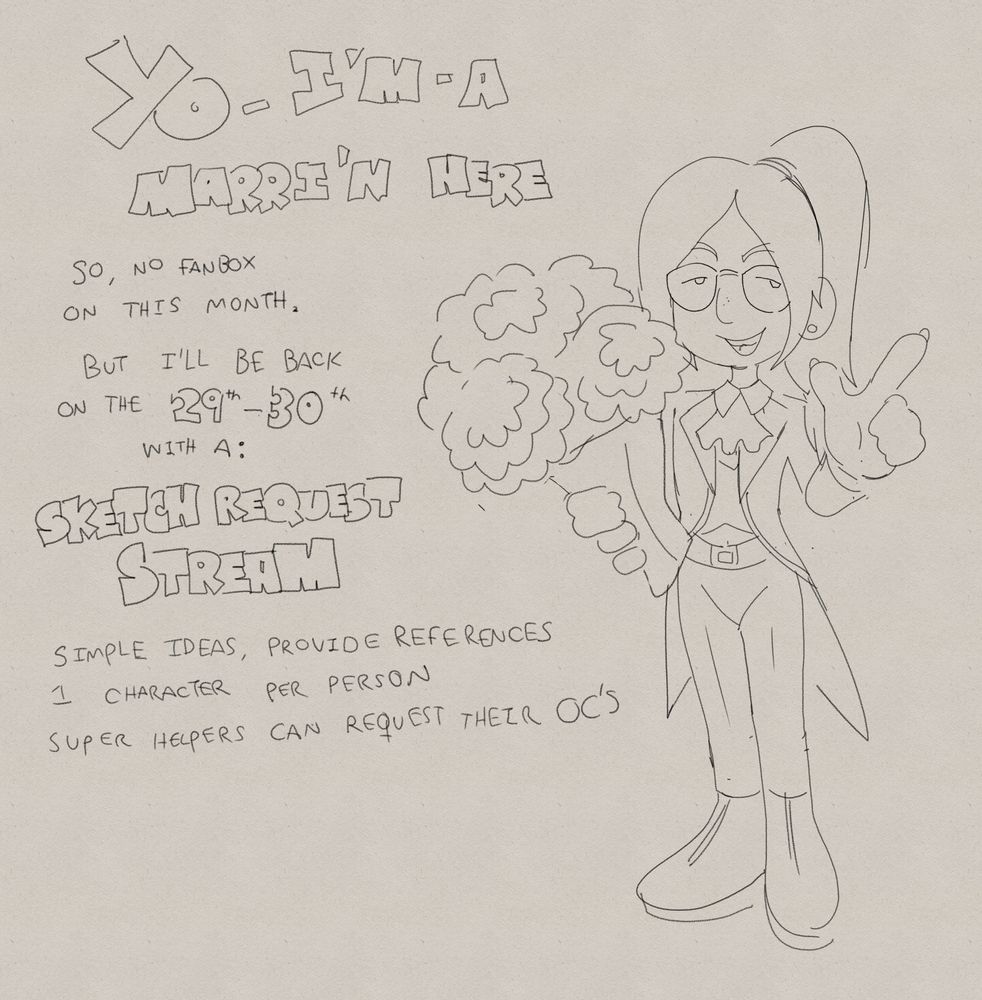 YO - I'M - A
MARRI'N HERE
SO, NO FANBOX
ON THIS MONTH.
BUT I'LL BE BACK
ON THE 29th - 30th
WITH A:
SKETCH REQUEST
STREAM
SIMPLE IDEAS, PROVIDE REFERENCES
1 CHARACTER PER PERSON
SUPER HELPERS CAN REQUEST THEIR OC'S